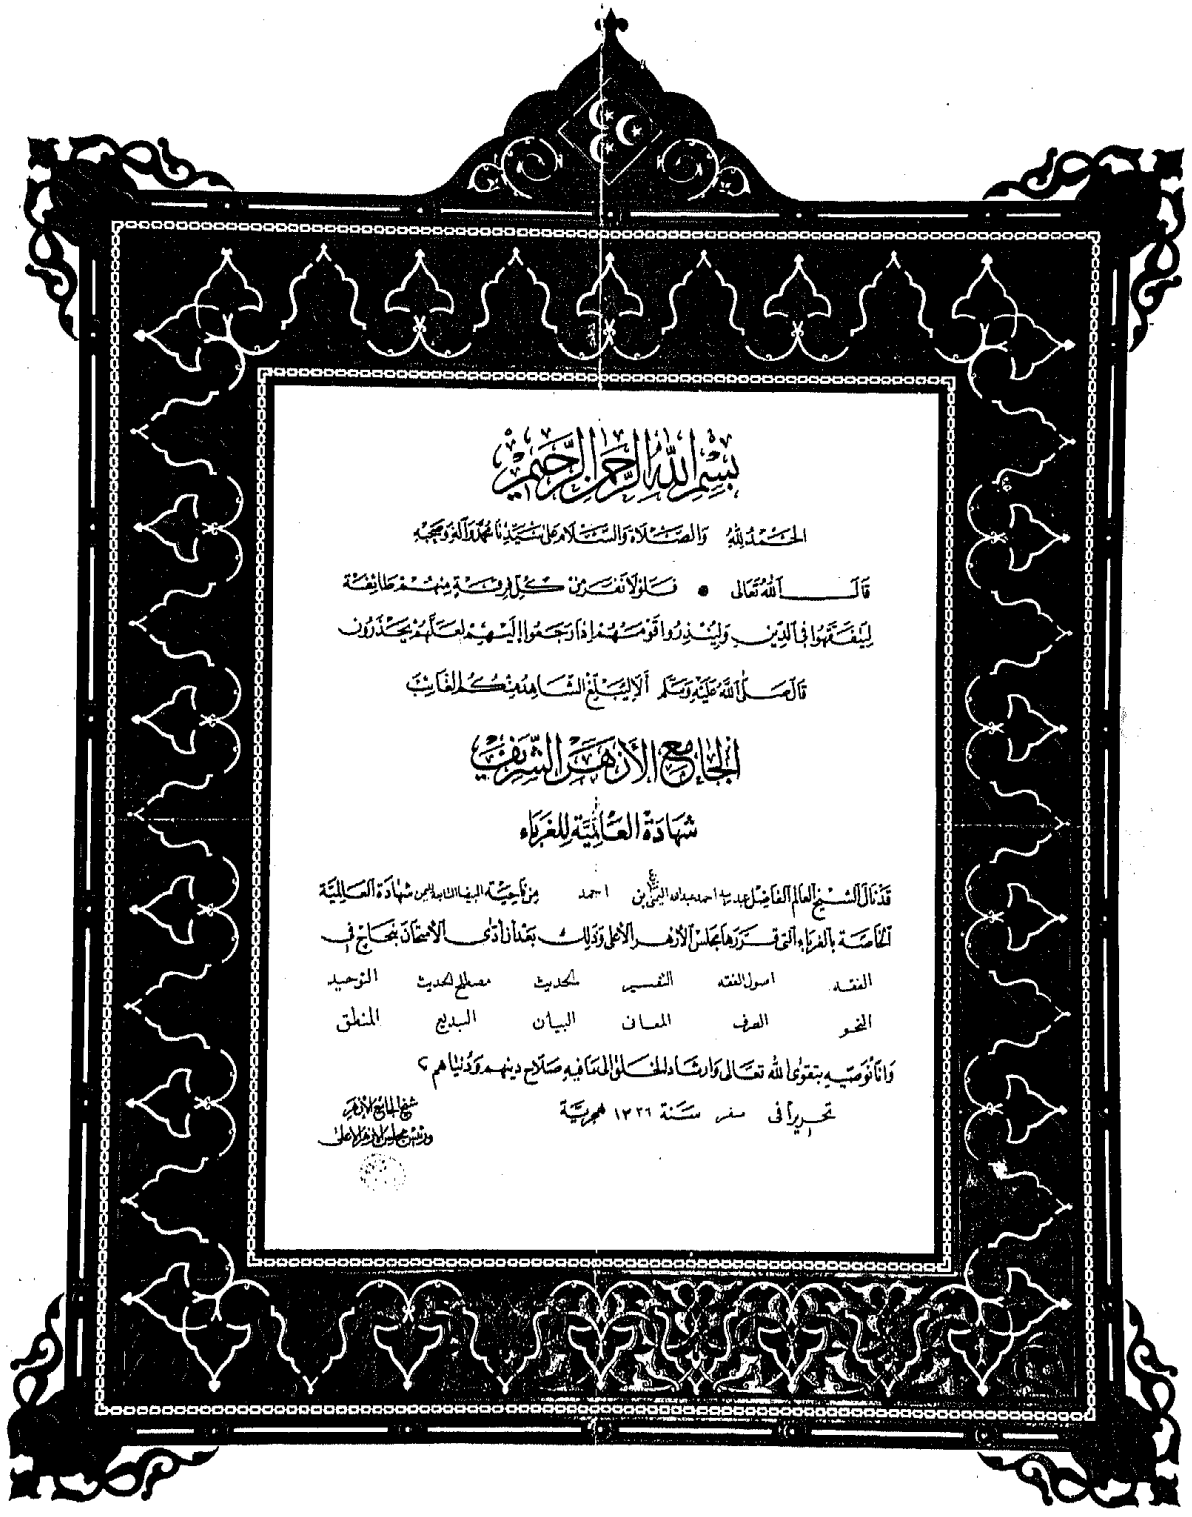 بسم الله الرحمن الرحيم
الحمد لله والصلاة والسلام على سيدنا محمد وآله وصحبه
قال الله تعالى • فلولا نفر من كل فرقة منهم طائفة
ليتفقهوا في الدين ولينذروا قومهم إذا رجعوا إليهم لعلهم يحذرون
قال صلى الله عليه وسلم ألا ليبلغ الشاهد منكم الغائب
الجامع الأزهر الشريف
شهادة العالمية للغرباء
قد نال الشيخ العالم الفاضل احمد عبدالله اليمني بن احمد من ناحية شهادة العالمية
الخاصة بالغرباء التي قررها مجلس الأزهر الأعلى وذلك بعد أن أدى الامتحان بنجاح في
الفقه اصول الفقه التفسير الحديث مصطلح الحديث التوحيد
النحو الصرف المعاني البيان البديع المنطق
وانا نوصيه بتقوى الله تعالى وارشاد الخلق الى ما فيه صلاح دينهم ودنياهم
تحريرا في صفر سنة ١٣٣٦ هجرية
شيخ الجامع الأزهر
ورئيس مجلس الأزهر الأعلى